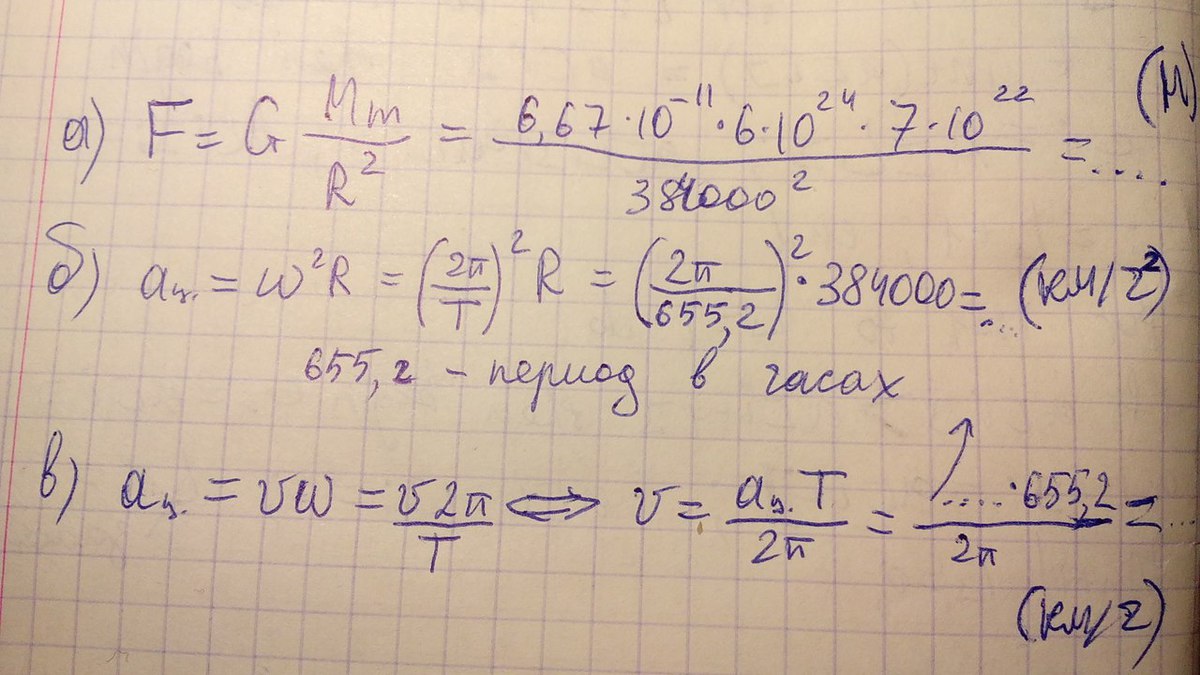 а) F = G Mm/R² = 6,67·10⁻¹¹·6·10²⁴·7·10²²/384000² = .... (М)
б) aц. = ω²R = (2π/T)² R = (2π/655,2)²·384000 = ... (км/г²)
655,2 – период в часах
в) aц. = vω = v2π/T ⟺ v = aц.T/2π = ....·655,2/2π = ...
(км/г)